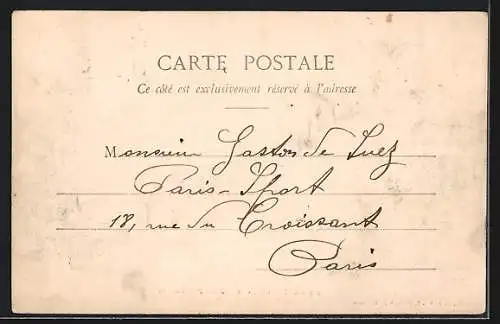 CARTE POSTALE
Ce côté est exclusivement réservé à l'adresse
Monsieur Gaston de Suez
Paris-Sport
18, rue du Croissant
Paris